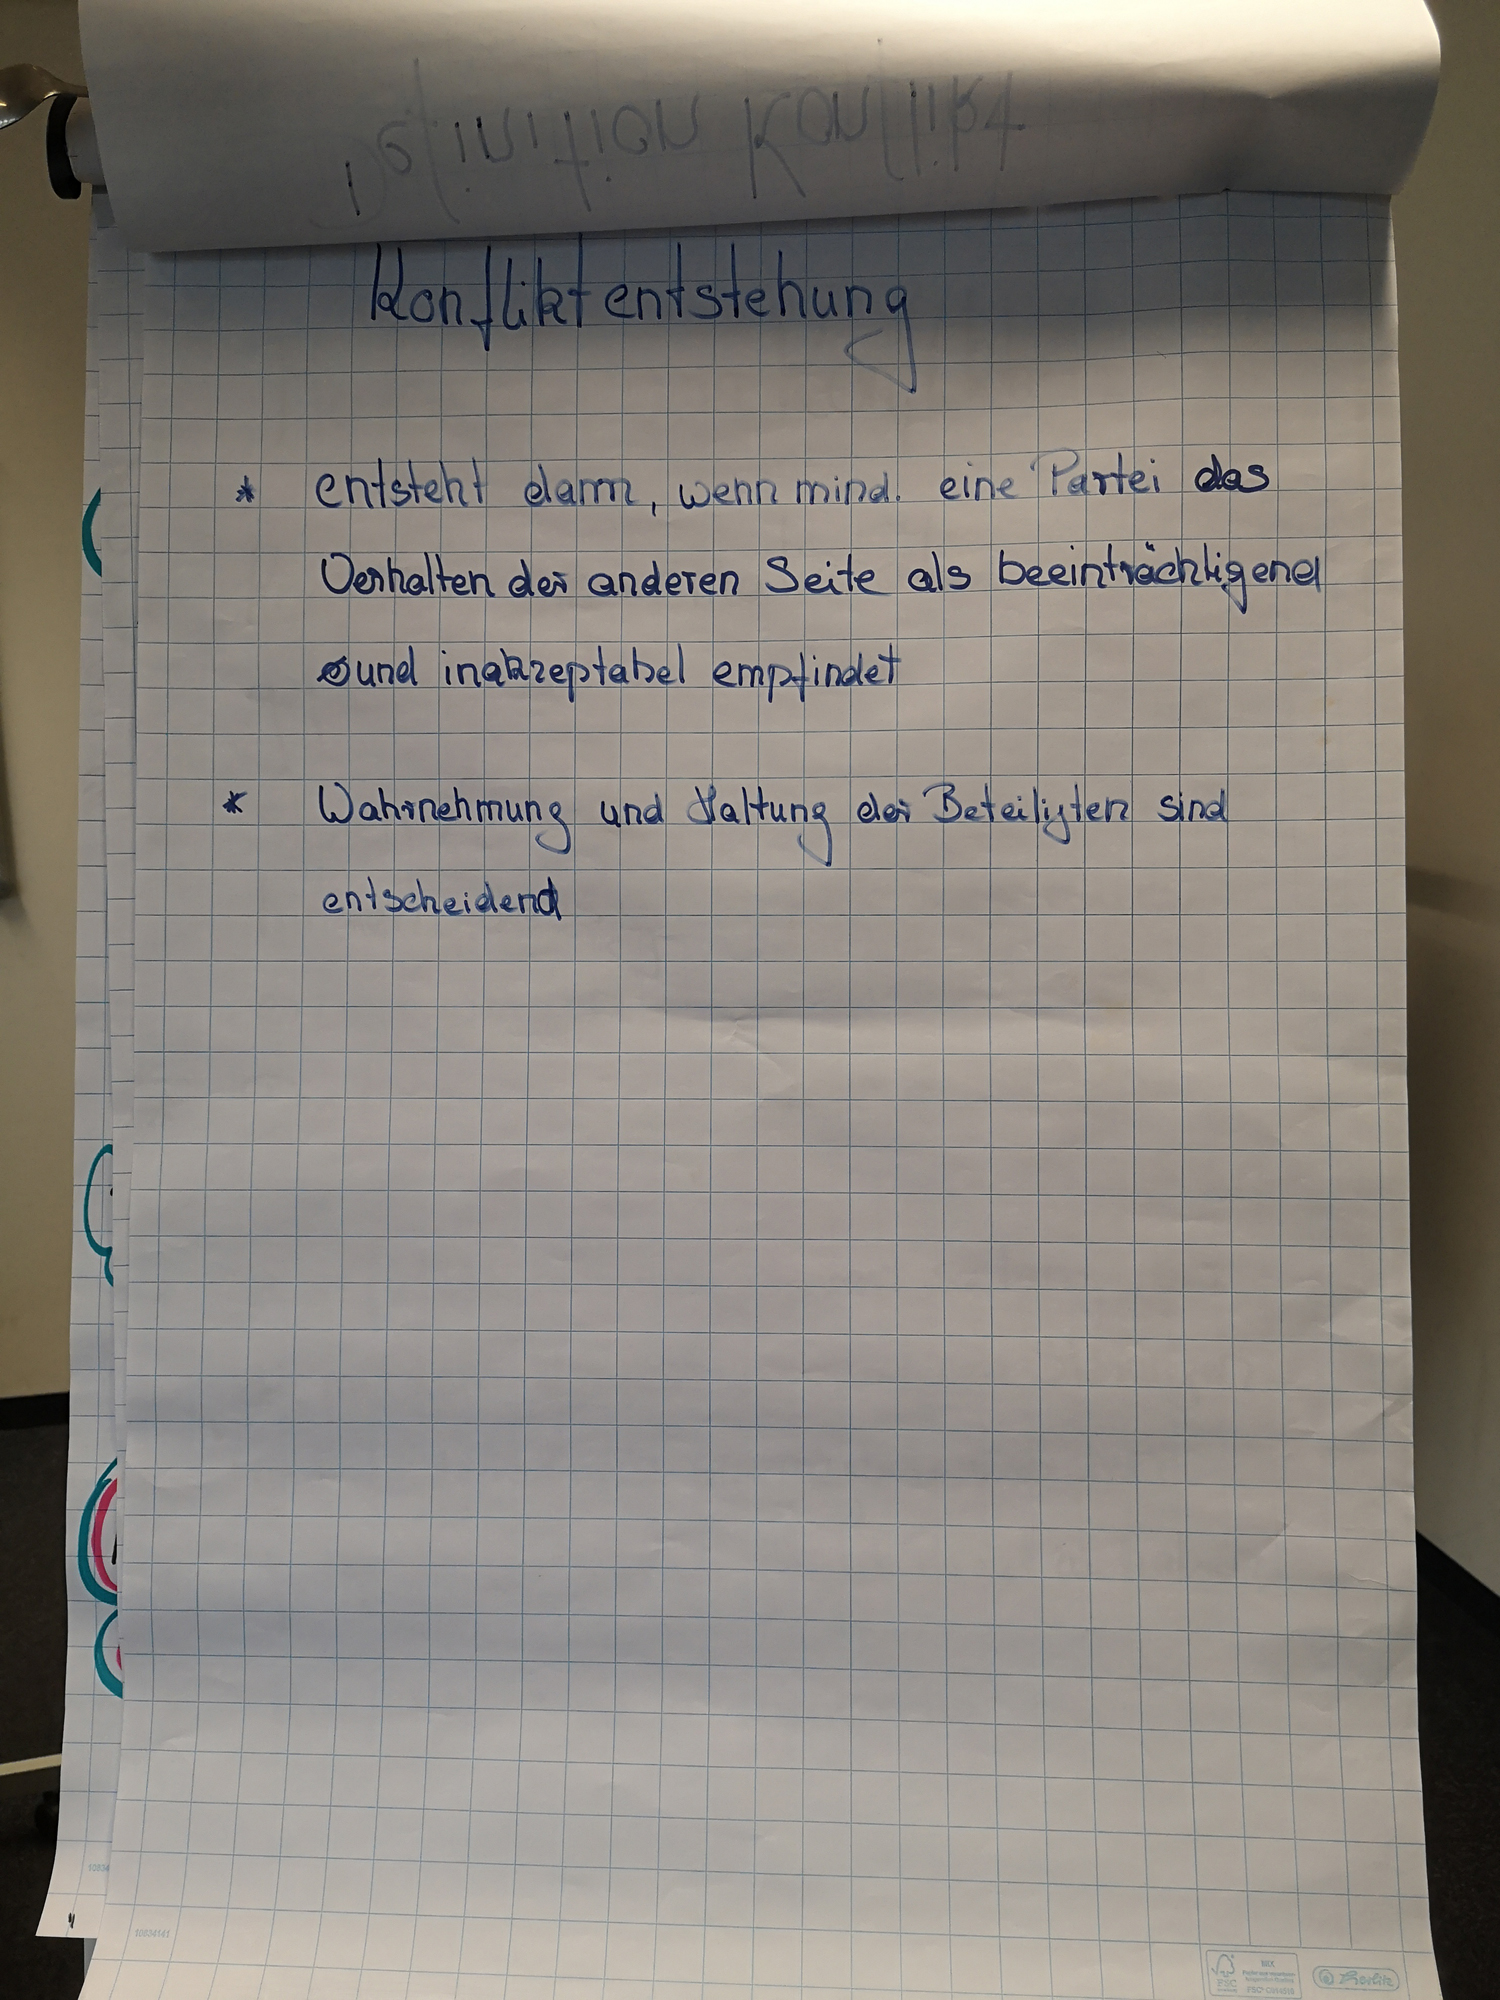 Definition Konflikt
Konfliktentstehung
* entsteht dann, wenn mind. eine Partei das
Verhalten der anderen Seite als beeinträchtigend
und inakzeptabel empfindet
* Wahrnehmung und Haltung der Beteiligten sind
entscheidend
10834141
FSC
MIX
Herlitz